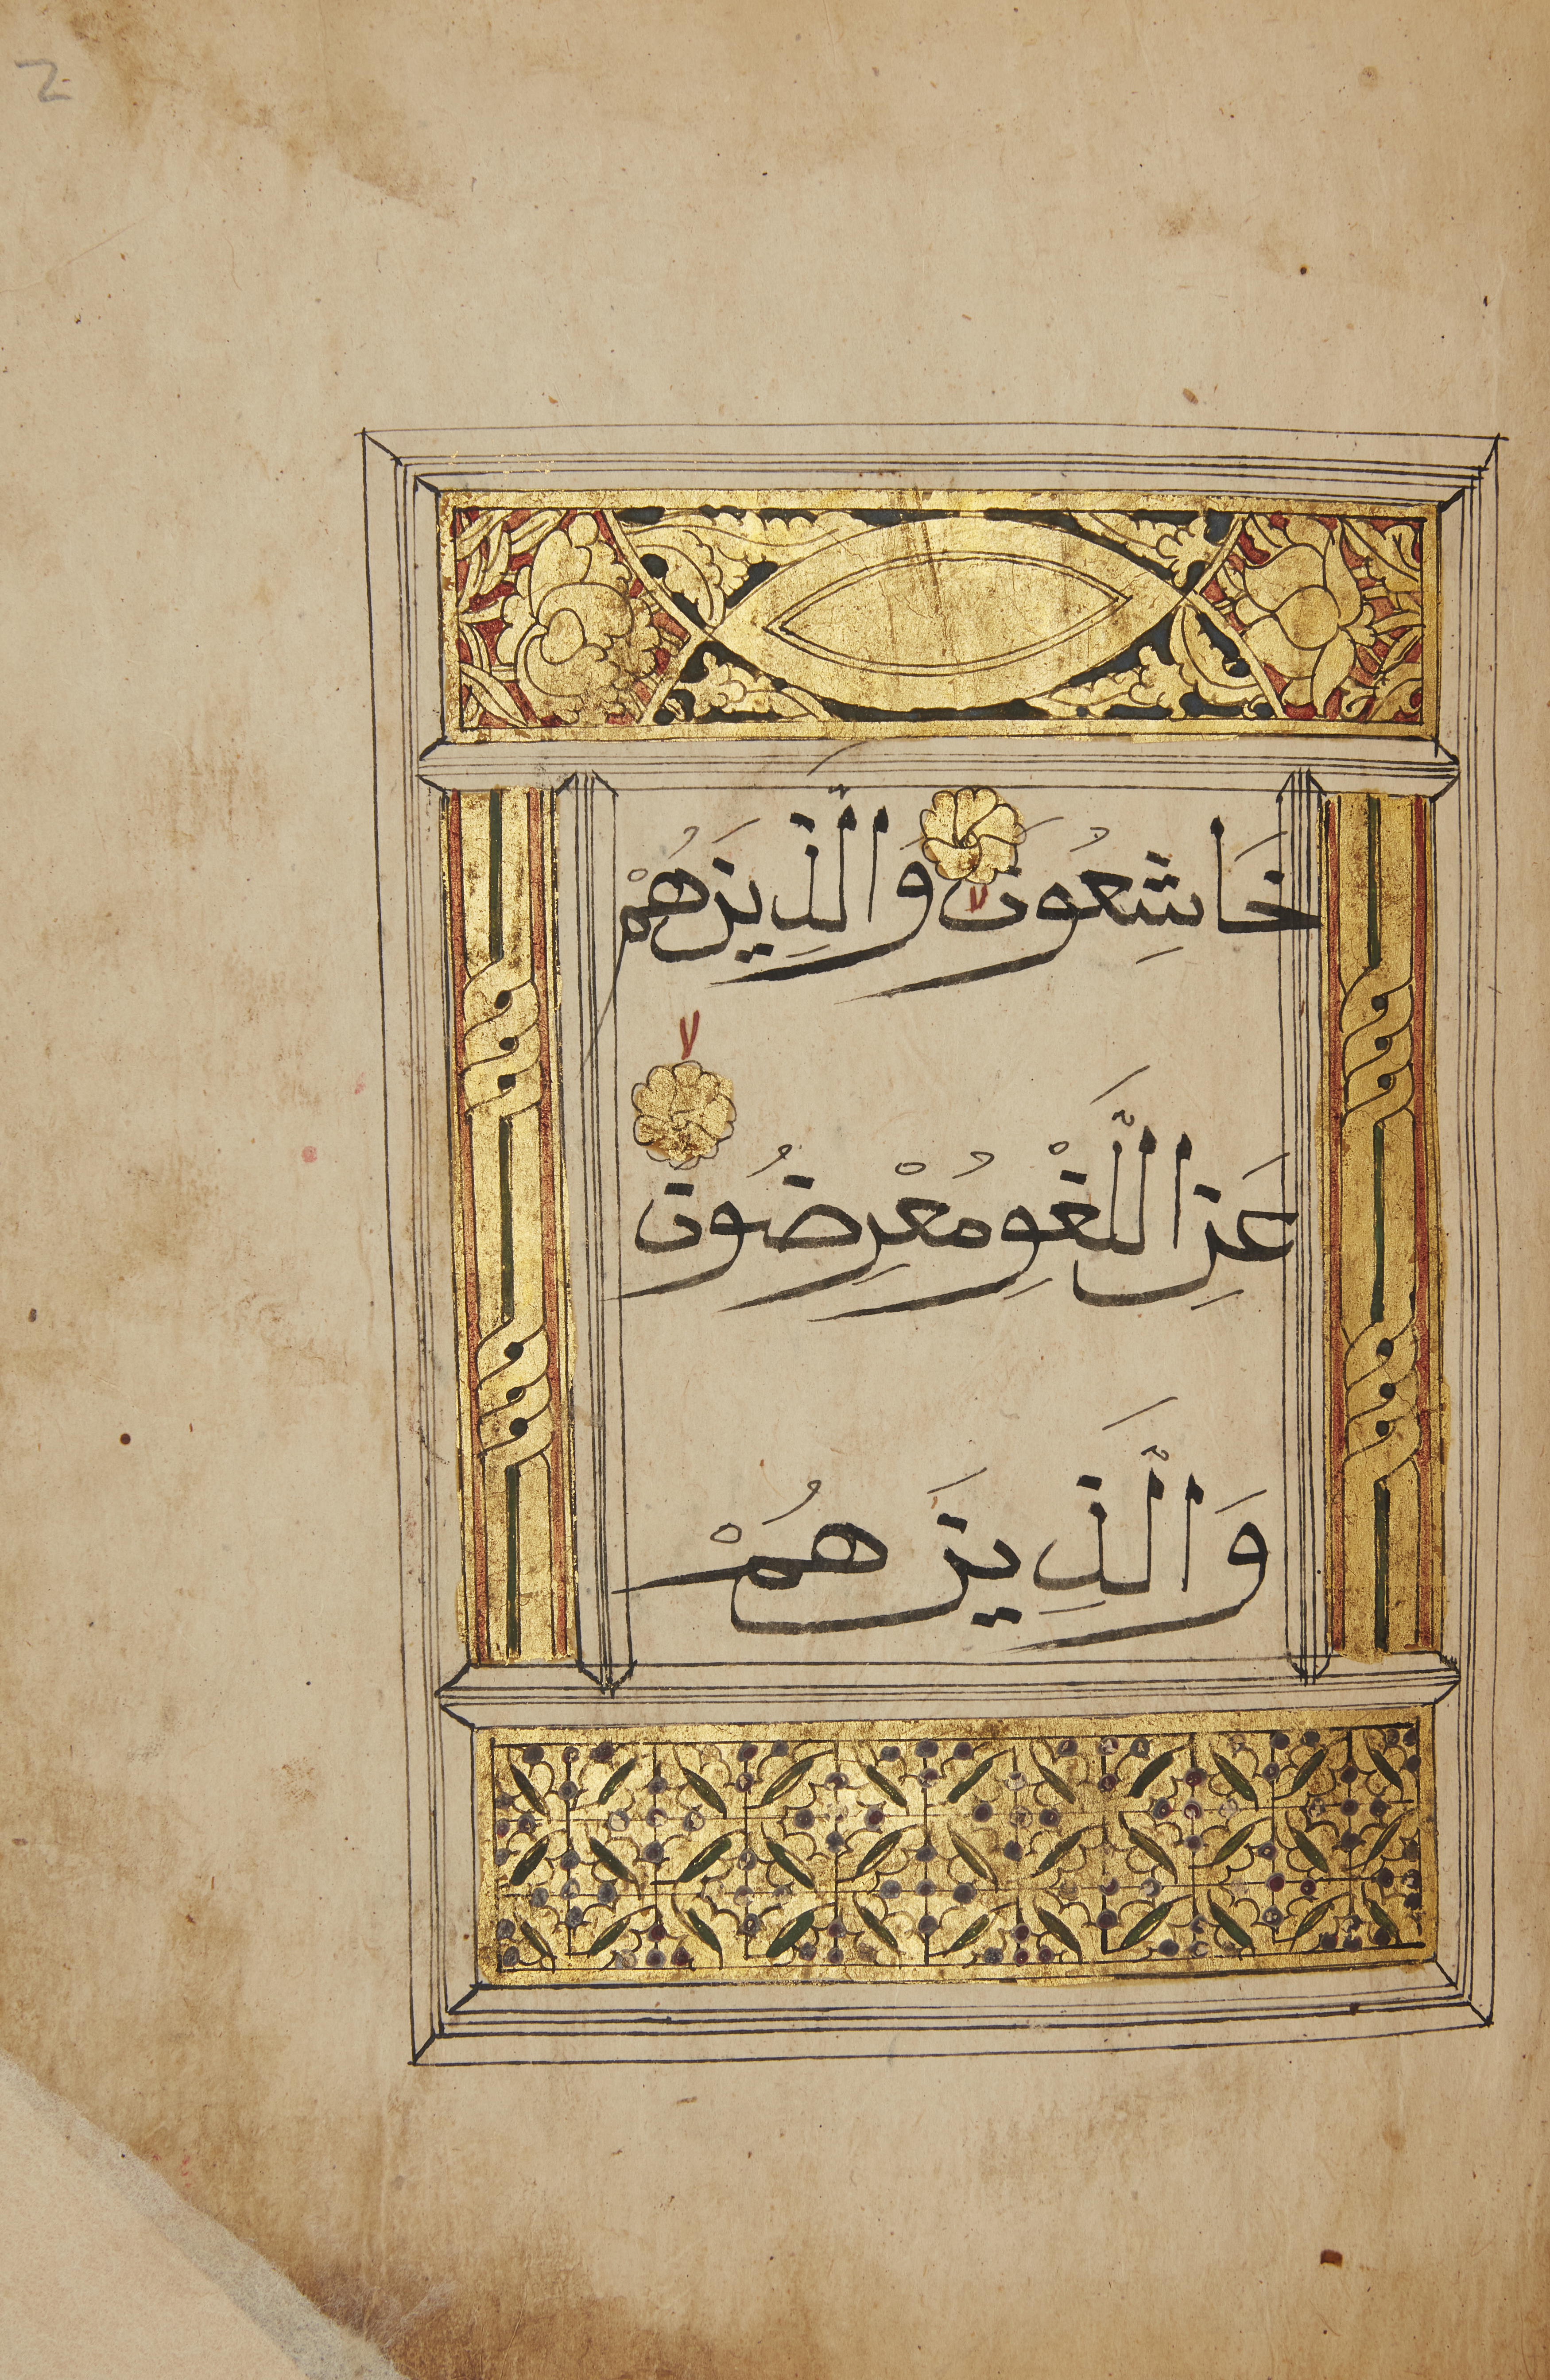 2
خَاشِعُونَ لا وَالَّذِينَ هُمْ
لا
عَنِ اللَّغْوِ مُعْرِضُونَ
وَالَّذِينَ هُمْ